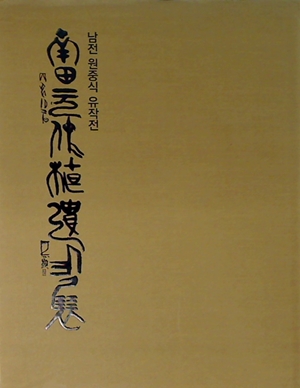 남전 원중식 유작전
南田元仲植遺作展